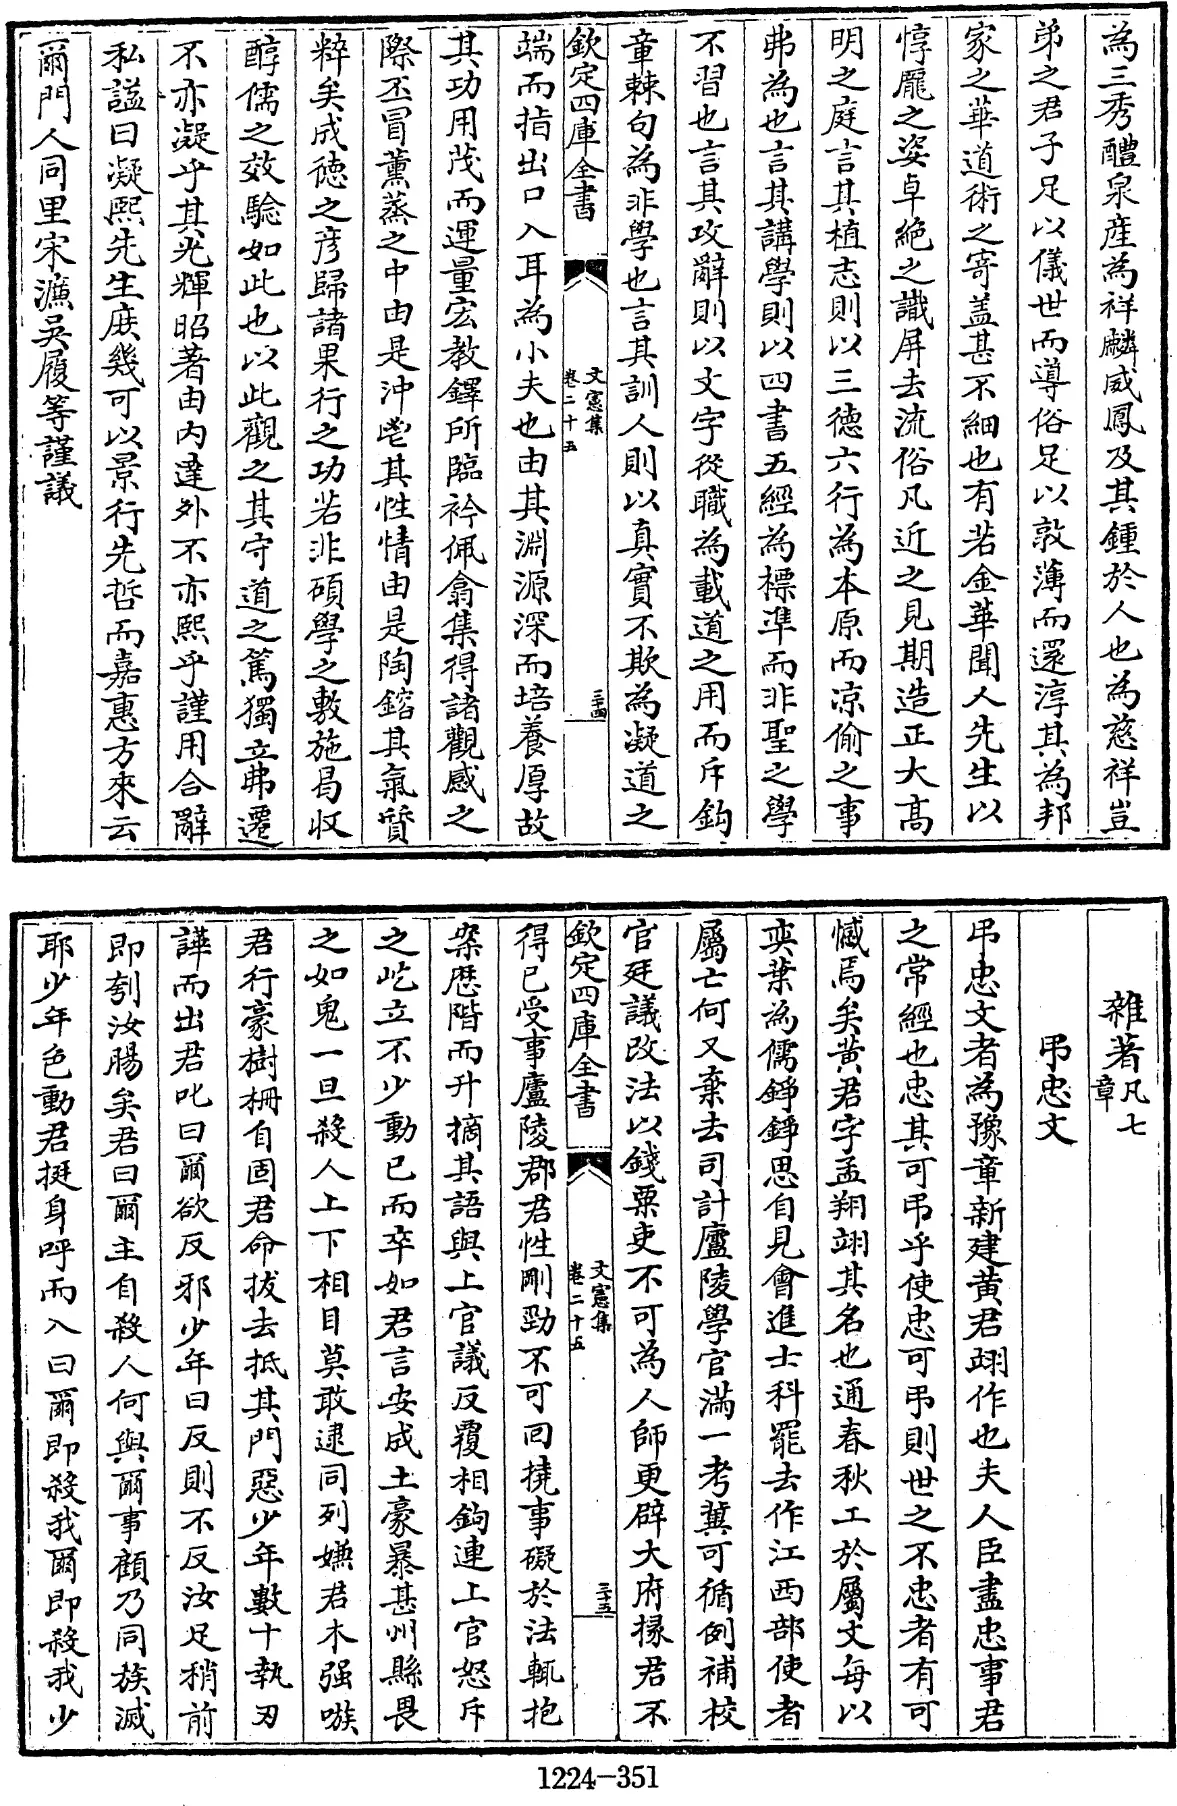 為三秀醴泉産為祥麟威鳳及其鍾於人也為慈祥豈
弟之君子足以儀世而導俗足以敦薄而還淳其為邦
家之華道術之寄盖甚不細也有若金華聞人先生以
惇厖之姿卓絶之識屏去流俗凡近之見期造正大髙
明之庭言其植志則以三德六行為本原而凉偷之事
弗為也言其講學則以四書五經為標準而非聖之學
不習也言其攻辭則以文字從職為載道之用而斥鈎
章棘句為非學也言其訓人則以真實不欺為凝道之
欽定四庫全書
文憲集
卷二十五
三十四
端而指出口入耳為小夫也由其淵源深而培養厚故
其功用茂而運量宏教鐸所臨衿佩翕集得諸觀感之
際丕冒薰蒸之中由是沖邕其性情由是陶鎔其氣質
粹矣成德之彦歸諸果行之功若非碩學之敷施曷収
醇儒之效驗如此也以此觀之其守道之篤獨立弗遷
不亦凝乎其光輝昭著由内達外不亦熙乎謹用合辭
私諡曰凝熙先生庻幾可以景行先哲而嘉惠方來云
爾門人同里宋濂吳履等謹議
雜著凡七章
弔忠文
弔忠文者為豫章新建黄君翊作也夫人臣盡忠事君
之常經也忠其可弔乎使忠可弔則世之不忠者有可
憾焉矣黄君字孟翔翊其名也通春秋工於屬文每以
奕葉為儒錚錚思自見會進士科罷去作江西部使者
屬亡何又棄去司計廬陵學官滿一考冀可循例補校
官廷議改法以錢粟吏不可為人師更辟大府掾君不
欽定四庫全書
文憲集
卷二十五
三十五
得已受事廬陵郡君性剛勁不可回撓事礙於法輒抱
案歴階而升摘其語與上官議反覆相鈎連上官怒斥
之屹立不少動已而卒如君言安成土豪暴甚州縣畏
之如鬼一旦殺人上下相目莫敢逮同列嫌君木强嗾
君行豪樹柵自固君命拔去抵其門惡少年數十執刃
譁而出君叱曰爾欲反邪少年曰反則不反汝足稍前
即刳汝腸矣君曰爾主自殺人何與爾事顧乃同族滅
耶少年色動君挺身呼而入曰爾即殺我爾即殺我少
1224-351